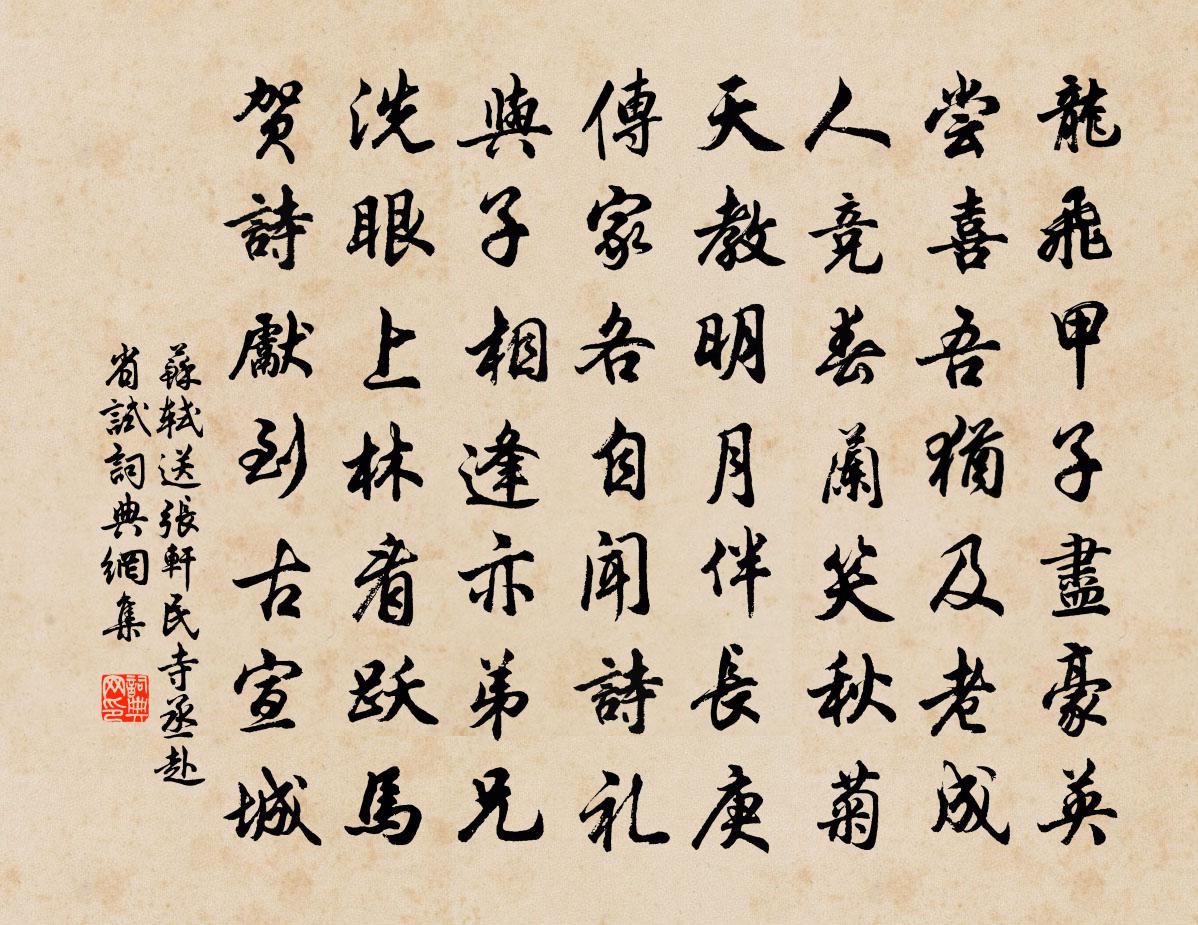 龍飛甲子盡豪英
嘗喜吾猶及老成
人競春蘭笑秋菊
天教明月伴長庚
傳家各自聞詩礼
與子相逢亦弟兄
洗眼上林看跃馬
贺詩獻到古宣城
蘇軾送張軒民寺丞赴
省試詞典網集
詞典
网印